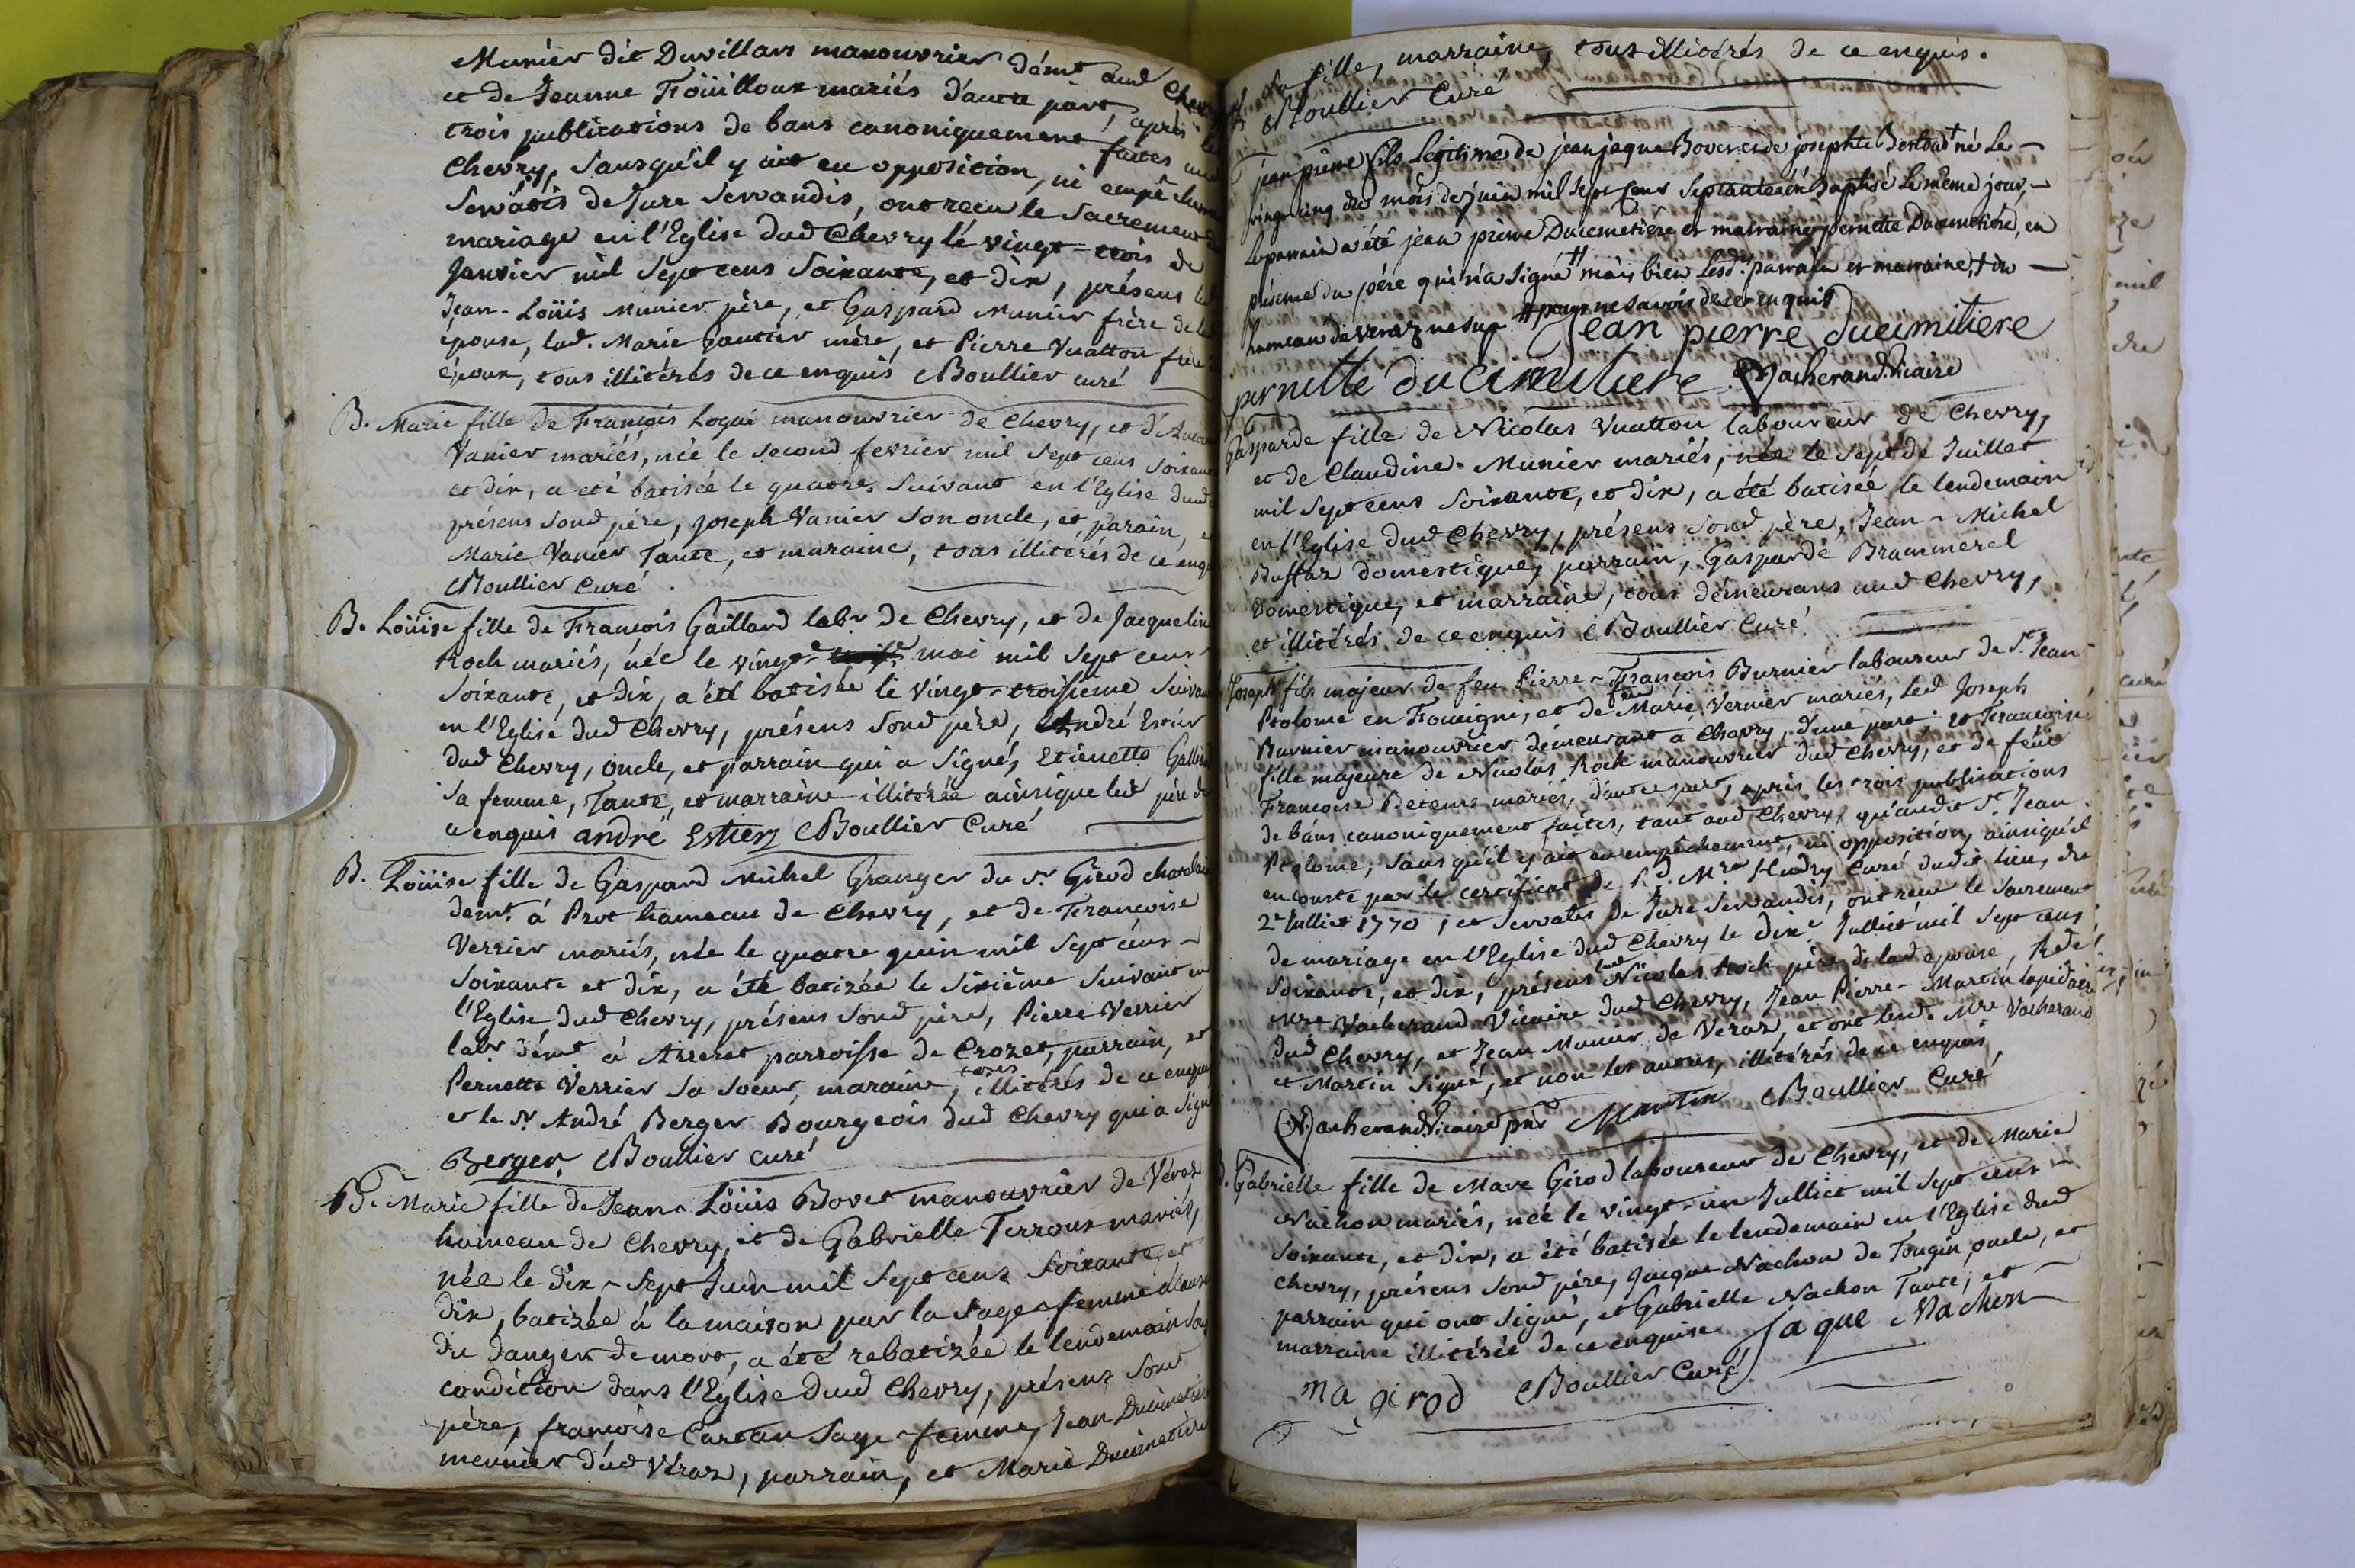 Munier dit Duvillars manouvrier démt aud Chev
et de Jeanne Foüilloux mariés d'autre part, après
trois publications de bans canoniquement faites aud
Chevry, sans qu'il y ait eu opposition, ni empêchem
Servatis de Jure Servandis, ont reçu le Sacrement
mariage en l'Eglise dud Chevry le vingt-trois de
Janvier mil Sept cens Soixante, et dix, présens
Jean-Loüis Munier père, et Gaspard Munier frère de
épouse, lad. Marie Gautier mère, et Pierre Vuatton frère
époux, tous illitérés de ce enquis Boullier curé
B. Marie fille de François Loqui manouvrier de Chevry, et d'
Vanier mariés, née le second fevrier mil Sept cens Soixan
et dix, a été batisée le quatre Suivant en l'Eglise dud
présens Sond père, Joseph Vanier Son oncle, et parain,
Marie Vanier Tante, et maraine, tous illitérés de ce enq
Boullier Curé
B. Loüise fille de François Gaillard labr de Chevry, et de Jacqueline
Roch mariés, née le vingt mai mil Sept cens
Soixante, et dix, a été batisée le vingt-troisième Suivant
en l'Eglise dud Chevry, présens Sond père, André Estier
dud Chevry, oncle, et parrain qui a Signé, Etienette
Sa femme, Tante, et marraine illitérée ainsique led père de
ce enquis andré Estier Boullier Curé
B. Loüise fille de Gaspard Michel Granger du Sr. Girod
demt. à Prot hameau de Chevry, et de Françoise
Verrier mariés, née le quatre juin mil Sept cens
Soixante et dix, a été batizée le Sixième Suivant en
l'Eglise dud Chevry, présens Sond père, Pierre Verrier
labr démt à Asseret parroisse de Crozet, parrain, et
Pernette Verrier Sa Soeur, maraine, tous illitérés de ce enquis
et le Sr. André Berger Bourgeois dud Chevry qui a Signé
Berger Boullier curé
B. Marie fille de Jean-Loüis Bovet manouvrier de Véraz
hameau de Chevry, et de Gabrielle Terroux mariés,
née le dix-Sept Juin mil Sept cens Soixante, et
dix, batizée à la maison par la Sage-femme à cause
du danger de mort, a été rebatizée le lendemain Sous
condition dans l'Eglise dud Chevry, présens Sond
père, françoise Cartan Sage-femme, Jean Ducimetière
meunier dud Véraz, parrain, et Marie Ducimetière
Sa fille, marraine, tous illitérés de ce enquis.
Boullier Curé
jean pierre fils Légitime de jean jaque Bovet et de josephte né Le
vingt cinq du mois de juin mil Sept Cens Septante a été Baptisé Le même jour,
Le parrain a été jean pierre Ducimetiére et marraine pernette Ducimetiére, en
présence du père qui n'a Signé # mais bien Lesd. parrain et marraine,
hameau de veraz # pour ne Savoir de ce enquis Jean pierre ducimitiere
pernette ducimitiere Vacherand Vicaire
Gasparde fille de Nicolas Vuatton laboureur de Chevry,
et de Claudine Munier mariés, née le Sept de Juillet
mil Sept cens Soixante, et dix, a été batisée le lendemain
en l'Eglise dud Chevry, présens Sond père, Jean-Michel
Buffaz domestique, parrain, Gasparde Brammerel
domestique, et marraine, tous démeurans aud Chevry,
et illitérés de ce enquis Boullier Curé
Joseph fils majeur de feu Pierre-François Burnier laboureur de St. Jean
Ptolome en Foucigni, et de feüe Marie Vernier mariés, led Joseph
Burnier manouvrier démeurant à Chevry, d'une part: et Françoise
fille majeure de Nicolas Roch manouvrier dud Chevry, et de feüe
Françoise mariés, d'autre part, après les trois publications
de bans canoniquement faites, tant aud Chevry, qu'audit St. Jean
Ptolome, Sans qu'il y ait eu empêchement, ni opposition, ainsiqu'il
en conste par le certificat de Rd. Mre Hudry Curé dudit lieu, du
2e Julliet 1770, et Servatis de Jure Servandis, ont reçu le Sacrement
de mariage en l'Eglise dud Chevry le dixe Julliet mil Sept cens
Soixante, et dix, présens led Nicolas Roch père de lad epouse, Rd
Mre Vacherand Vicaire dud Chevry, Jean Pierre-Martin lapidaire
dud Chevry, et Jean Munier de Veraz, et ont led. Mre Vacherand
et Martin Signé, et non les autres, illitérés de ce enquis
Vacherand Vicaire pnt Martin Boullier Curé
B. Gabrielle fille de Marc Girod laboureur de Chevry, et de Marie
Nachon mariés, née le vingt-un Julliet mil Sept cens
Soixante, et dix, a été batisée le lendemain en l'Eglise dud
Chevry, présens Sond père, Jacque Nachon de Tougin, oncle, et
parrain qui ont Signé, et Gabrielle Nachon Tante, et
marraine illitérée de ce enquise Jaque Nachon
ma girod Boullier Curé